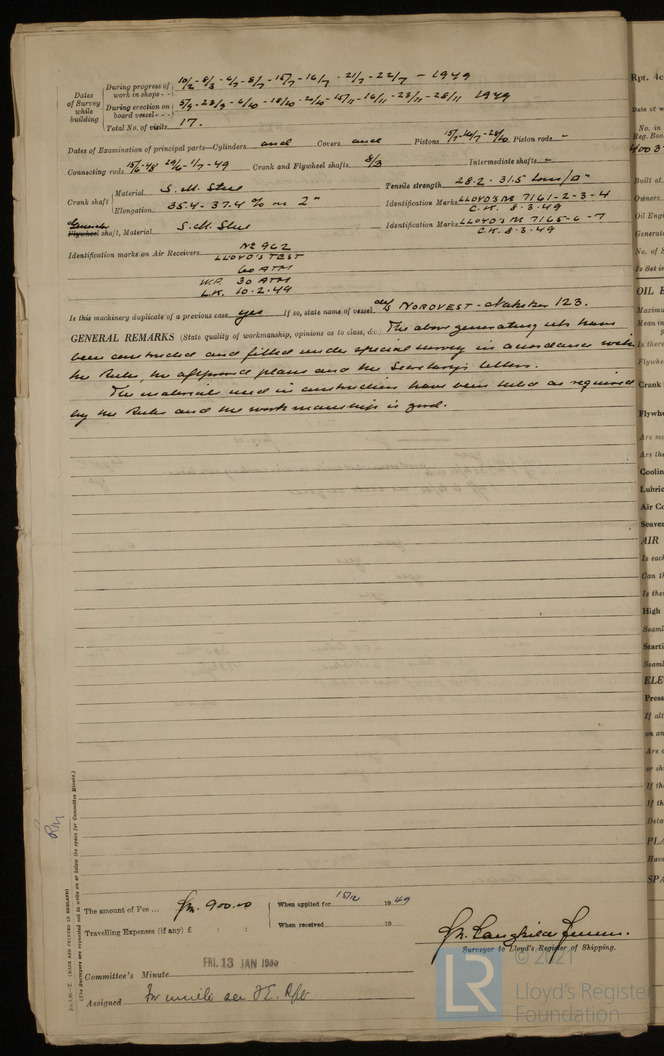 Dates of Survey while building
During progress of work in shops - - 10/2 - 8/3 - 6/7 - 8/7 - 15/7 - 16/7 - 21/7 - 22/7 - 1949
During erection on board vessel - - - 5/9 - 23/9 - 6/10 - 18/10 - 15/11 - 16/11 - 23/11 - 28/11 1949
Total No. of visits 17.
Dates of Examination of principal parts—Cylinders and Covers and Pistons Piston rods -
Connecting rods 15/6-48 1/7-49 Crank and Flywheel shafts 8/3 Intermediate shafts -
Crank shaft Material S.M. Steel Tensile strength 28.2 - 31.5 tons/□"
Elongation 35.4 - 37.4 % on 2" Identification Marks LLOYD'S 7161-2-3-4
8.3.49
Generator Flywheel shaft, Material S.M. Steel Identification Marks LLOYD'S 7165-6-7
8.3.49
Identification marks on Air Receivers No 962
LLOYD'S TEST
60 ATM
W.P. 30 ATM
10.2.49
Is this machinery duplicate of a previous case yes If so, state name of vessel NORDVEST - Nakskov 123.
GENERAL REMARKS (State quality of workmanship, opinions as to class, &c.) The above generating sets have
been constructed and fitted under special survey in accordance with
the Rules, the approved plans and the Secretary's letters.
The materials used in construction have been tested as required
by the Rules and the workmanship is good.
The amount of Fee ... 900.00 When applied for 15/12 1949
Travelling Expenses (if any) £ : : When received 19
Surveyor to Lloyd's Register of Shipping.
FRI. 13 JAN 1950
Committee's Minute
Assigned
(The Surveyors are requested not to write on or below the space for Committee Minute.)
Rpt. 4c
Date of
No. in
Reg. Boo
Built at
Owners
Oil Eng
Generat
No. of
Is Set
OIL
Maximu
Mean in
Is there
Flywhe
Crank
Flywhe
Are
Are the
Coolin
Lubric
Air Co
Scaven
AIR
Is eac
Can t
Is the
High
Seaml
Starti
Seaml
ELE
Press
If al
on an
Are
or sh
If th
If th
Dela
PLA
Hav
SPA
© 2021
LR
Lloyd's Register
Foundation